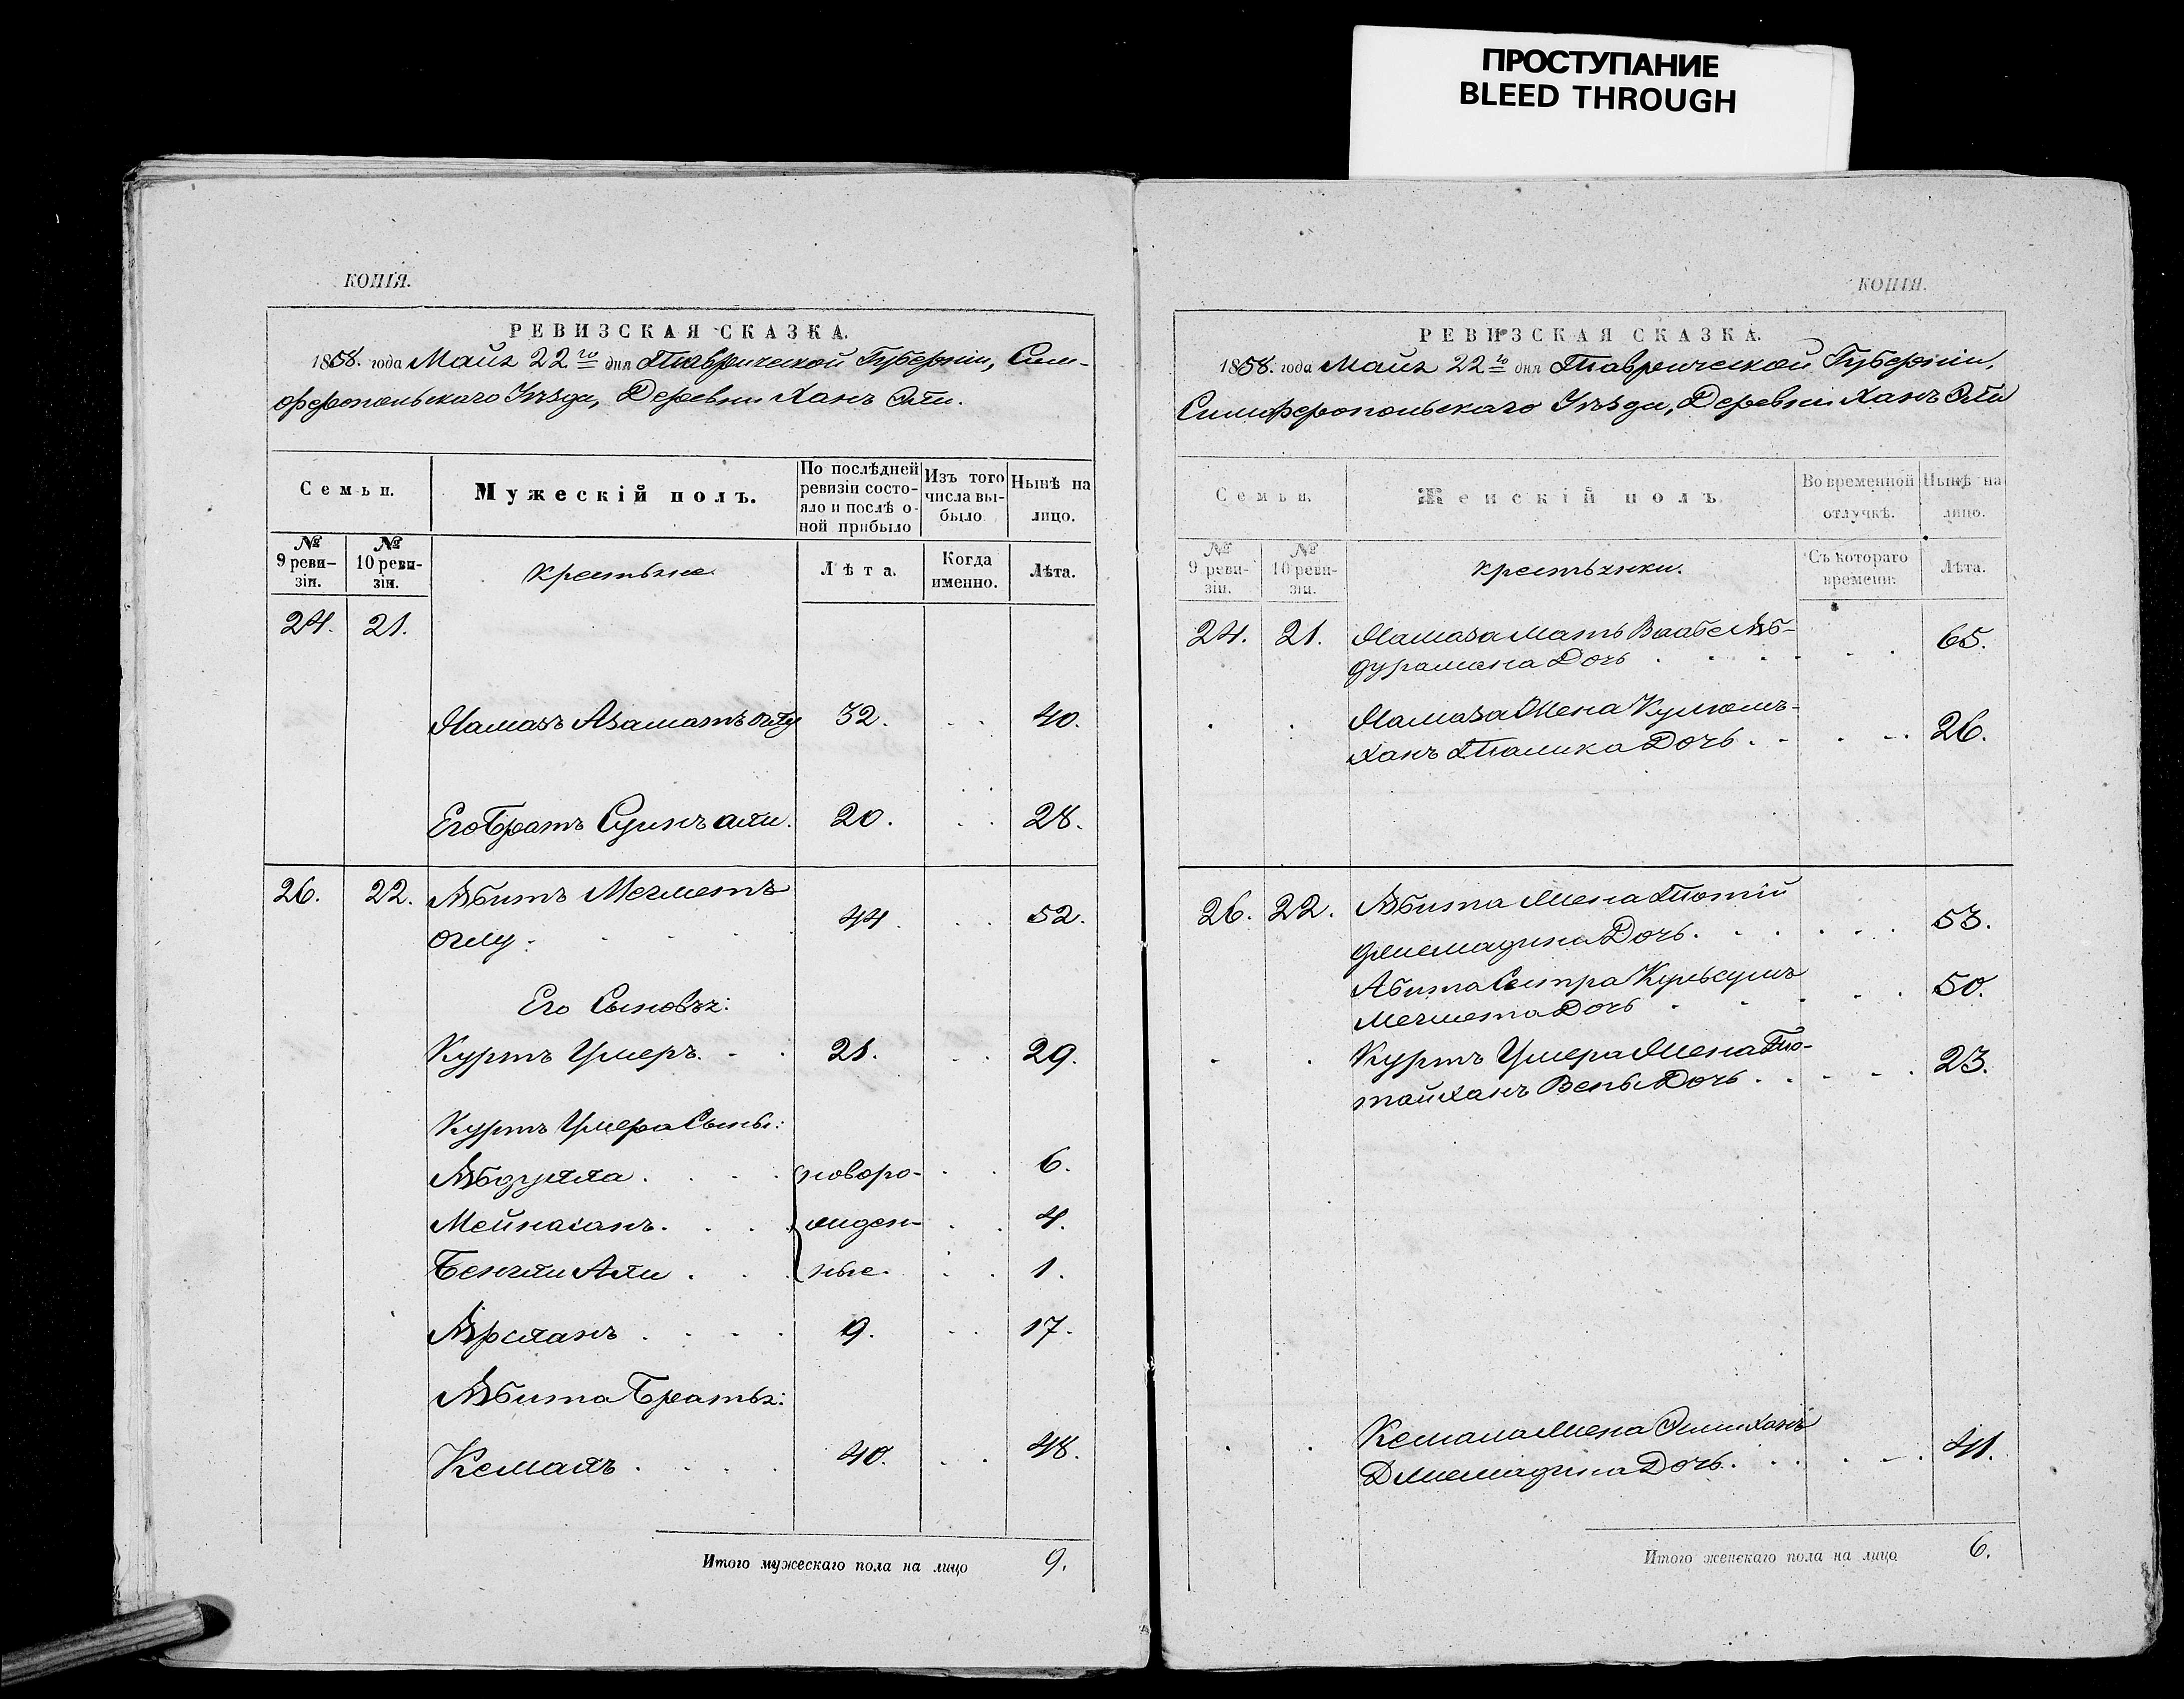 ПРОСТУПАНИЕ
BLEED THROUGH
КОПІЯ.
РЕВИЗСКАЯ СКАЗКА.
1858. года Мая 22го дня Таврической Губерніи, Сим-
феропольскаго Уѣзда, Деревни Ханъ Эли.
Семьи.
Мужескій полъ.
По послѣдней ревизіи состо-
яло и послѣ о-
ной прибыло
Изъ того числа вы-
было
Нынѣ на лицо.
№ 9 реви-
зіи.
№ 10 реви-
зіи.
Крестьяне
Лѣта.
Когда именно.
Лѣта.
24. 21.
Намазъ Азаматъ оглу 32. 40.
Его Братъ Сеинъ али. 20. 28.
26. 22. Абитъ Мегметъ
оглу. 44. 52.
Его Сыновья:
Куртъ Умеръ. 21. 29.
Куртъ Умера Сыны:
Абдулла. новоро- 6.
жден- 4.
Бекгли Али. ные. 1.
Арсланъ 9. 17.
Абита Братья:
Кемалъ. 40. 48.
Итого мужескаго пола на лицо 9.
КОПІЯ.
РЕВИЗСКАЯ СКАЗКА.
1858. года Мая 22го дня Таврической Губерніи,
Симферопольскаго Уѣзда, Деревни Ханъ Эли
Семьи.
Женскій полъ.
Во временной отлучкѣ.
Нынѣ на лицо.
№ 9 реви-
зіи.
№ 10 реви-
зіи.
Крестьянки.
Съ котораго времени.
Лѣта.
24. 21. Намаза Мать Ваабе Аб-
дурамана Дочь 65.
Намаза Жена
Ханъ Дочь. 26.
26. 22. Абита Жена
Дочь. 53.
Абита Сестра
Мегмета Дочь 50.
Куртъ Умера Жена Тю-
тайханъ Дочь. 23.
Кемала Жена
Джемадина Дочь. 41.
Итого женскаго пола на лицо 6.